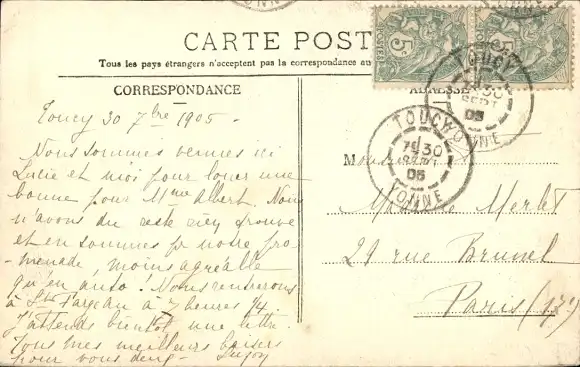 CARTE POST
Tous les pays étrangers n'acceptent pas la correspondance au
CORRESPONDANCE
Toucy 30 7bre 1905 -
Nous sommes venues ici
Lucie et moi pour louer une
bonne pour Mme Albert. Nous
n'avons du reste rien trouvé
et en sommes pr notre pro
-menade, moins agréable
qu'en auto. Nous rentrerons
à St Fargeau à 7 heures 1/4
J'attends bientôt une lettre.
Tous mes meilleurs baisers
pour vous deux -
ADRESSE
Monsieur
Merlet
21 rue Brunel
Paris (17e)
5c
POSTES
5c
TOUCY
30
SEPT
05
YONNE
TOUCY
7 30
SEPT
05
YONNE